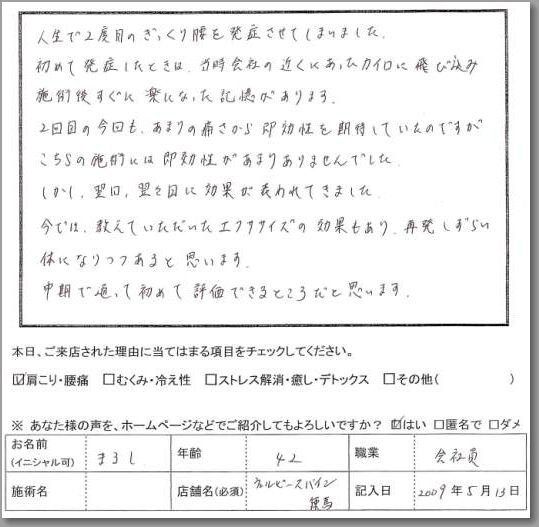 人生で2度目のぎっくり腰を発症させてしまいました.
初めて発症したときは、当時会社の近くにあったカイロに飛び込み
施術後すぐに楽になった記憶があります.
2回目の今回も、あまりの痛さから即効性を期待していたのですが
こちらの施術には即効性があまりありませんでした.
しかし、翌日、翌々日に効果が表われてきました.
今では、教えていただいたエクササイズの効果もあり、再発しずらい
体になりつつあると思います.
中期で通って初めて評価できるところだと思います.
本日、ご来店された理由に当てはまる項目をチェックしてください。
☑肩こり・腰痛 □むくみ・冷え性 □ストレス解消・癒し・デトックス □その他( )
※ あなた様の声を、ホームページなどでご紹介してもよろしいですか? ☑はい □匿名で □ダメ
お名前 まろし 年齢 42 職業 会社員
(イニシャル可)
施術名 店舗名(必須) ウェルビースパイン 記入日 2009年5月13日
練馬